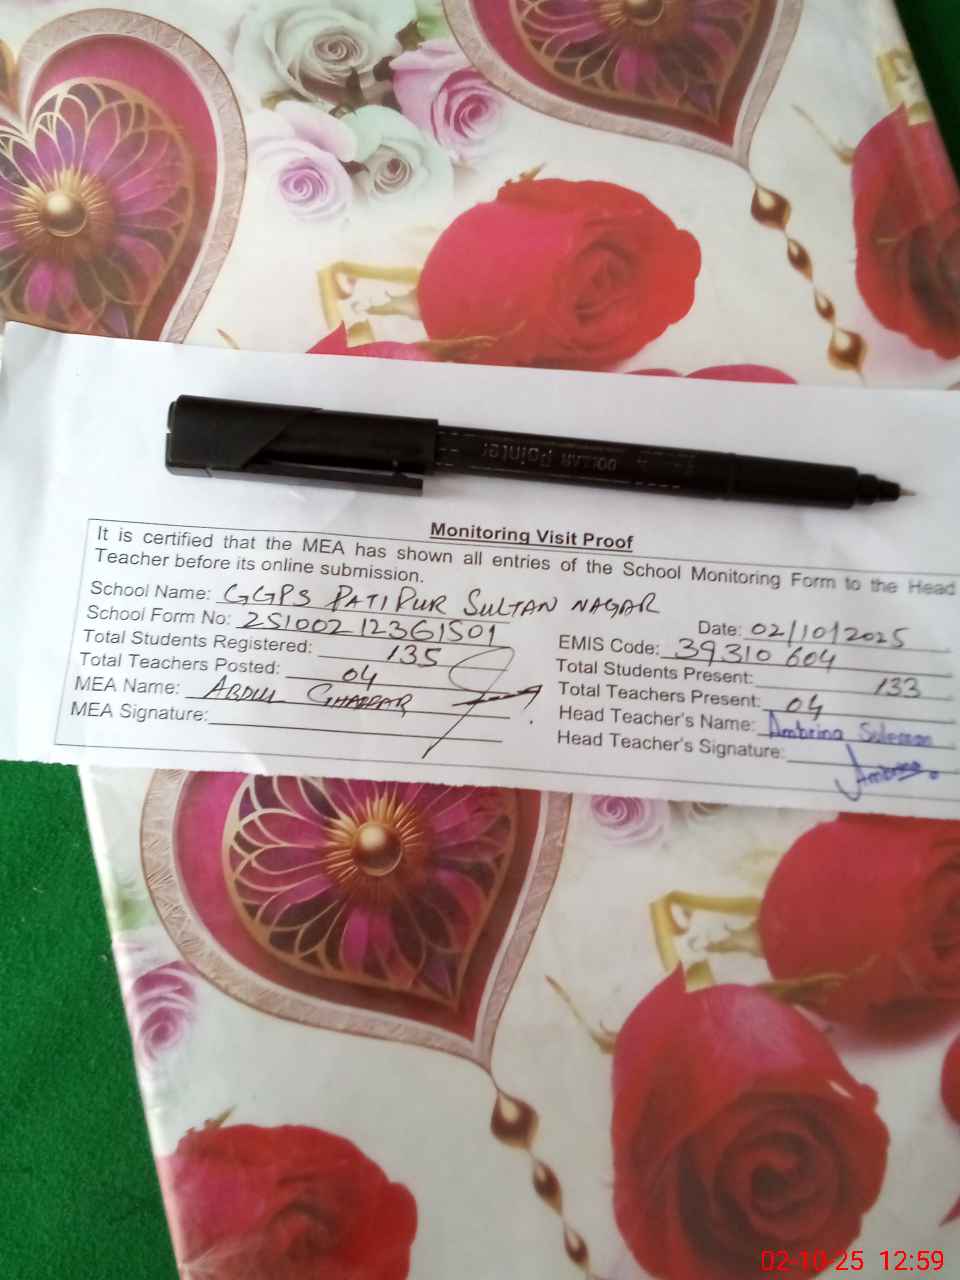 DOLLAR Pointer
Monitoring Visit Proof
It is certified that the MEA has shown all entries of the School Monitoring Form to the Head
Teacher before its online submission.
School Name: GGPS PATI PUR SULTAN NAGAR
Date: 02/10/2025
School Form No: 25100212361501
EMIS Code: 39310604
Total Students Registered: 135
Total Students Present: 133
Total Teachers Posted: 04
Total Teachers Present: 04
MEA Name: ABDUL GHAFFAR
Head Teacher's Name: Ambrina Suleman
MEA Signature:
Head Teacher's Signature: Ambrina
02-10-25 12:59